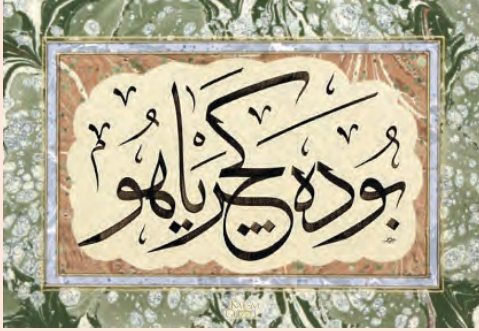 بُوده كچر ياهُو